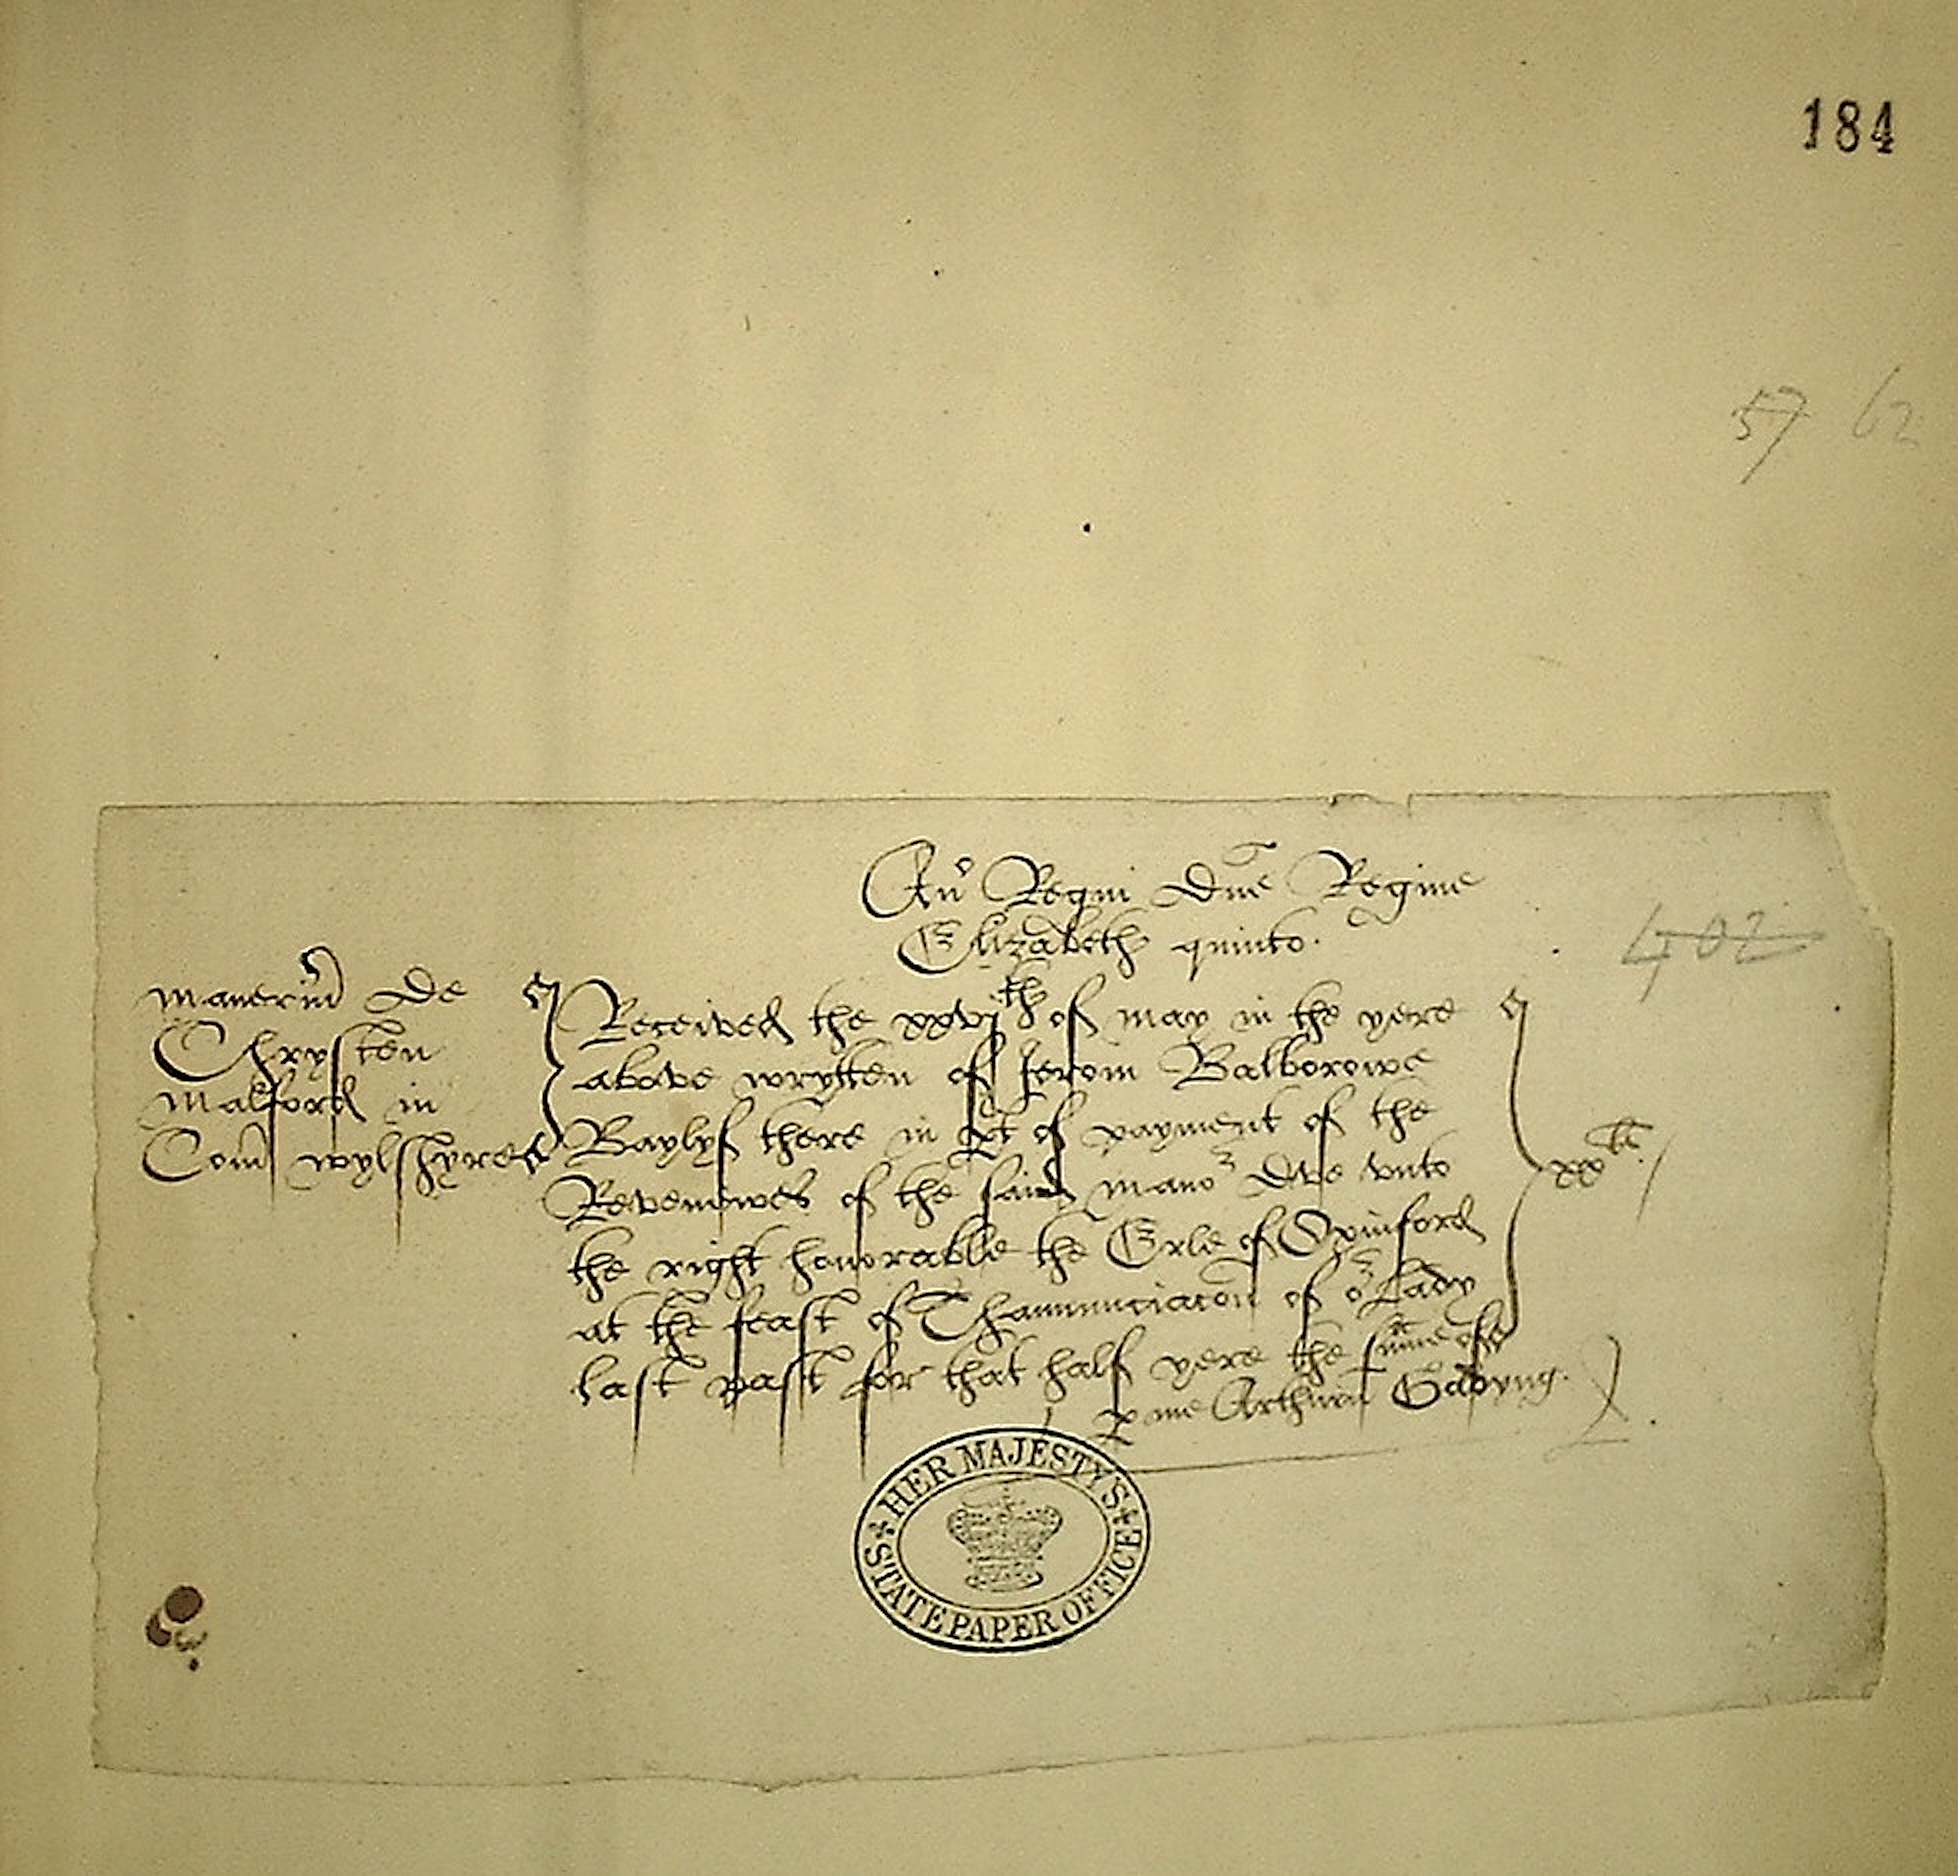 184
57 62
Ano Regni Dne Regine
Elizabeth quinto.
402
Maneriu de
Chrysten
Malford in
Com wylshyre
Received the xxvjth of may in the yere
above wrytten of Jerom Balborowe
Baylyf there in pt of payment of the
Revenewes of the said mano r due vnto
the right honorable the Erle of Oxinford
at the feast of Thannunciacon of or Lady
last past for that half yere the sume of
xx li
p me Arthur
HER MAJESTY'S
STATE PAPER OFFICE